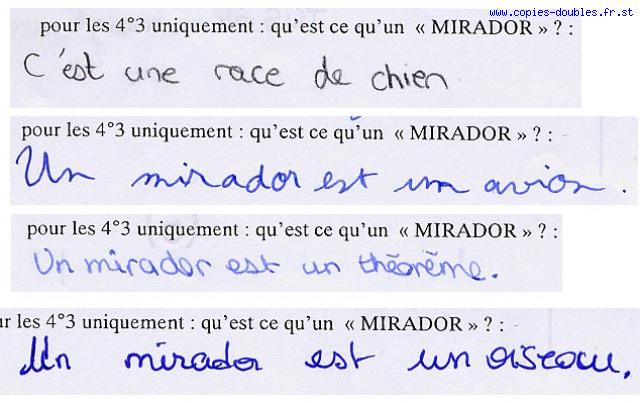 www.copies-doubles.fr.st
pour les 4°3 uniquement : qu'est ce qu'un « MIRADOR » ? :
C'est une race de chien
pour les 4°3 uniquement : qu'est ce qu'un « MIRADOR » ? :
Un mirador est un avion.
pour les 4°3 uniquement : qu'est ce qu'un « MIRADOR » ? :
Un mirador est un théorème.
ur les 4°3 uniquement : qu'est ce qu'un « MIRADOR » ? :
Un mirador est un oiseau.